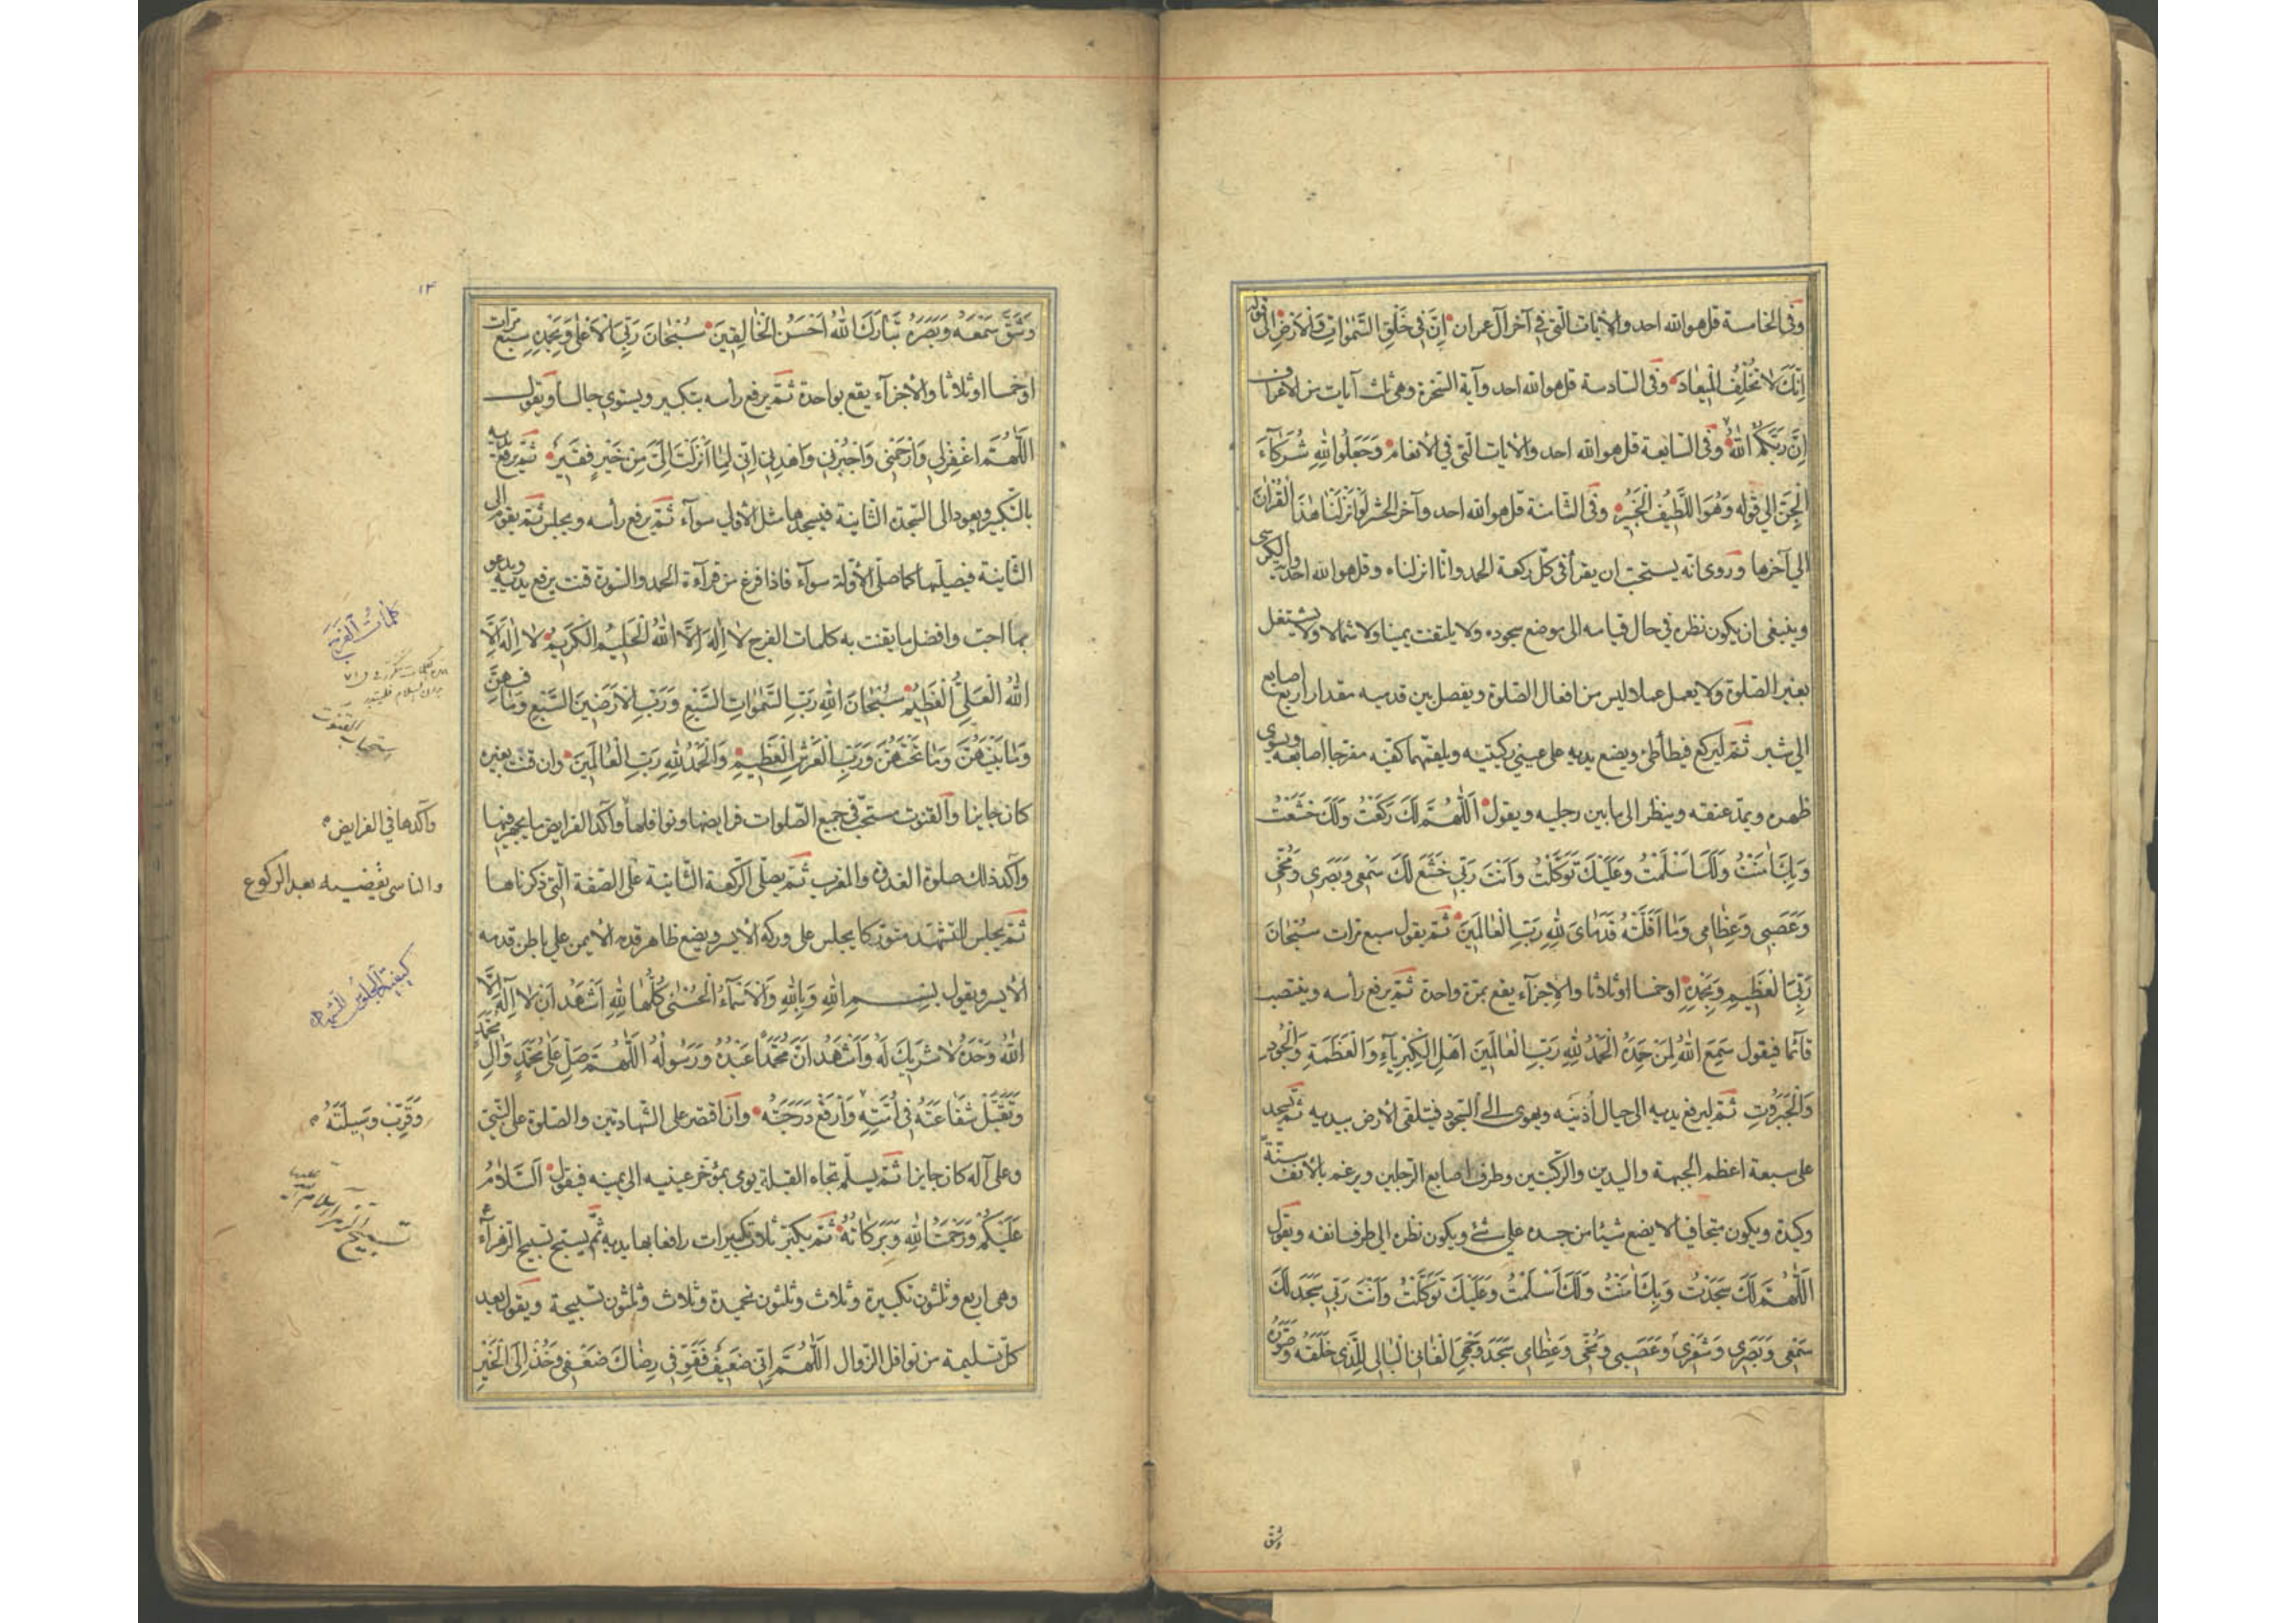 وفی الخامسة قل هو الله احد والآيات التی فی آخر آل عمران اِنَّ فی خَلْقِ السَّمٰواتِ وَالْاَرْضِ الی قوله
اِنَّكَ لا تُخْلِفُ الْمیعادَ وفی السادسة قل هو الله احد وآية السخرة وهی ثلث آيات من الاعراف
اِنَّ رَبَّكُمُ اللهُ وفی السابعة قل هو الله احد والآيات التی فی الانعام وَجَعَلُوا لِلّٰهِ شُرَكآءَ
الْجِنَّ الی قوله وَهُوَ اللَّطیفُ الْخَبیرُ وفی الثامنة قل هو الله احد وآخر الحشر لَوْ اَنْزَلْنا هٰذَا الْقُرْاٰنَ
الی آخرها وروی انه يستحبّ ان يقرأ فی كلّ ركعة الحمد وانّا انزلناه وقل هو الله احد وآية الكرسی
وينبغی ان يكون نظره فی حال قيامه الی موضع سجوده ولا يلتفت يمينا ولا شمالا ولا يشتغل
بغير الصلوة ولا يعمل عملا ليس من افعال الصّلوة ويفصل بين قدميه مقدار اربع اصابع
الی شبر ثمّ ليركع فيطأطئ ويضع يديه علی عينی ركبتيه ويلقمهما كفّيه مفرّجا اصابعه ويسوی
ظهره ويمدّ عنقه وينظر الی ما بين رجليه ويقول اَللّٰهُمَّ لَكَ رَكَعْتُ وَلَكَ خَشَعْتُ
وَبِكَ اٰمَنْتُ وَلَكَ اَسْلَمْتُ وَعَلَيْكَ تَوَكَّلْتُ وَاَنْتَ رَبّی خَشَعَ لَكَ سَمْعی وَبَصَری وَمُخّی
وَعَصَبی وَعِظامی وَما اَقَلَّتْهُ قَدَمایَ لِلّٰهِ رَبِّ الْعالَمینَ ثمّ يقول سبع مرّات سُبْحانَ
رَبِّیَ الْعَظیمِ وَبِحَمْدِهِ او خمسا او ثلاثا والاجزآء يقع بمرّة واحدة ثمّ يرفع رأسه وينتصب
قآئما فيقول سَمِعَ اللهُ لِمَنْ حَمِدَهُ الْحَمْدُ لِلّٰهِ رَبِّ الْعالَمینَ اَهْلِ الْكِبْرِيآءِ وَالْعَظَمَةِ وَالْجُودِ
وَالْجَبَرُوتِ ثمّ ليرفع يديه الی حيال اُذنيه ويهوی الی السّجود فيتلقی الارض بيديه ثمّ يسجد
علی سبعة اعظم الجبهة واليدين والركبتين وطرف اصابع الرّجلين ويرغم بالانف سنّة
وكيدة ويكون متجافيا لا يضع شيئا من جسده علی شئ ويكون نظره الی طرف انفه ويقول
اَللّٰهُمَّ لَكَ سَجَدْتُ وَبِكَ اٰمَنْتُ وَلَكَ اَسْلَمْتُ وَعَلَيْكَ تَوَكَّلْتُ وَاَنْتَ رَبّی سَجَدَ لَكَ
سَمْعی وَبَصَری وَشَعْری وَعَصَبی وَمُخّی وَعِظامی سَجَدَ وَجْهِیَ الْفانِی الْبالی لِلَّذی خَلَقَهُ وَصَوَّرَهُ
وشقّ
۱۴
وَشَقَّ سَمْعَهُ وَبَصَرَهُ تَبارَكَ اللهُ اَحْسَنُ الْخالِقینَ سُبْحانَ رَبِّیَ الْاَعْلی وَبِحَمْدِهِ سبع مرّات
او خمسا او ثلاثا والاجزآء يقع بواحدة ثمّ يرفع رأسه بتكبير ويستوی جالسا ويقول
اَللّٰهُمَّ اغْفِرْلی وَارْحَمْنی وَاجْبُرْنی وَاهْدِنی اِنّی لِما اَنْزَلْتَ اِلَیَّ مِنْ خَيْرٍ فَقیرٌ ثمّ يرفع يديه
بالتّكبير ويعود الی السّجدة الثّانية فيسجدها مثل الاولی سوآء ثمّ يرفع رأسه ويجلس ثمّ يقوم الی
الثّانية فيصلّيها كما صلّی الاوّلة سوآء فاذا فرغ من قرآءة الحمد والسّورة قنت يرفع يديه ويدعو
بما احبّ وافضل ما يقنت به كلمات الفرج لا اِلٰهَ اِلَّا اللهُ الْحَلیمُ الْكَریمُ لا اِلٰهَ اِلَّا
اللهُ الْعَلِیُّ الْعَظیمُ سُبْحانَ اللهِ رَبِّ السَّمٰواتِ السَّبْعِ وَرَبِّ الْاَرَضینَ السَّبْعِ وَما فیهِنَّ
وَما بَيْنَهُنَّ وَما تَحْتَهُنَّ وَرَبِّ الْعَرْشِ الْعَظیمِ وَالْحَمْدُ لِلّٰهِ رَبِّ الْعالَمینَ وان قنت بغيره
كان جايزا والقنوت مستحبّ فی جميع الصّلوات فرايضها ونوافلها وآكد الفرايض ما يجهر فيها
وآكد ذلك صلوة الغداة والمغرب ثمّ يصلّی الرّكعة الثّانية علی الصّفة الّتی ذكرناها
ثمّ يجلس للتّشهّد متورّكا يجلس علی وركه الايسر ويضع ظاهر قدمه الايمن علی باطن قدمه
الايسر ويقول بِسْمِ اللهِ وَبِاللهِ وَالْاَسْمآءُ الْحُسْنی كُلُّها لِلّٰهِ اَشْهَدُ اَنْ لا اِلٰهَ اِلَّا
اللهُ وَحْدَهُ لا شَریكَ لَهُ وَاَشْهَدُ اَنَّ مُحَمَّدًا عَبْدُهُ وَرَسُولُهُ اَللّٰهُمَّ صَلِّ عَلی مُحَمَّدٍ وَاٰلِ مُحَمَّدٍ
وَتَقَبَّلْ شَفاعَتَهُ فی اُمَّتِهِ وَارْفَعْ دَرَجَتَهُ وان اقتصر علی الشّهادتين والصّلوة علی النّبیّ
وعلی آله كان جايزا ثمّ يسلّم تجاه القبلة يومی بمؤخّر عينيه الی يمينه فيقول اَلسَّلامُ
عَلَيْكُمْ وَرَحْمَتُ اللهِ وَبَرَكاتُهُ ثمّ يكبّر ثلاث تكبيرات رافعا بها يديه ثمّ يسبّح تسبيح الزّهرآء ع
وهی اربع وثلثون تكبيرة وثلاث وثلثون تحميدة وثلاث وثلثون تسبيحة ويقول بعد
كلّ تسليمة من نوافل الزّوال اَللّٰهُمَّ اِنّی ضَعیفٌ فَقَوِّ فی رِضاكَ ضَعْفی وَخُذْ اِلَی الْخَيْرِ
كلمات الفرج
استحباب القنوت
وآكدها فی الفرايض
والناسی يقضيه بعد الركوع
كيفية الجلوس للتشهد
وَقَرِّبْ وَسیلَتَهُ
تسبيح الزهراء